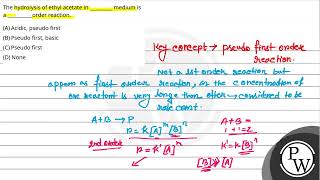 The hydrolysis of ethyl acetate in ________ medium is
a ____ order reaction.
(A) Acidic, pseudo first
(B) Pseudo first, basic
(C) Pseudo first
(D) None
Key concept → pseudo first order
reaction.
Not a 1st order reaction but
appears as first order reaction, as the concentration of
one reactant is very large than other → considered to be
rate const.
A+B → P
r = k [A]^m [B]^n
2nd order
r = k' [A]^m
A+B =
1+1=2
k' = k[B]^n
[B] >> [A]
PW